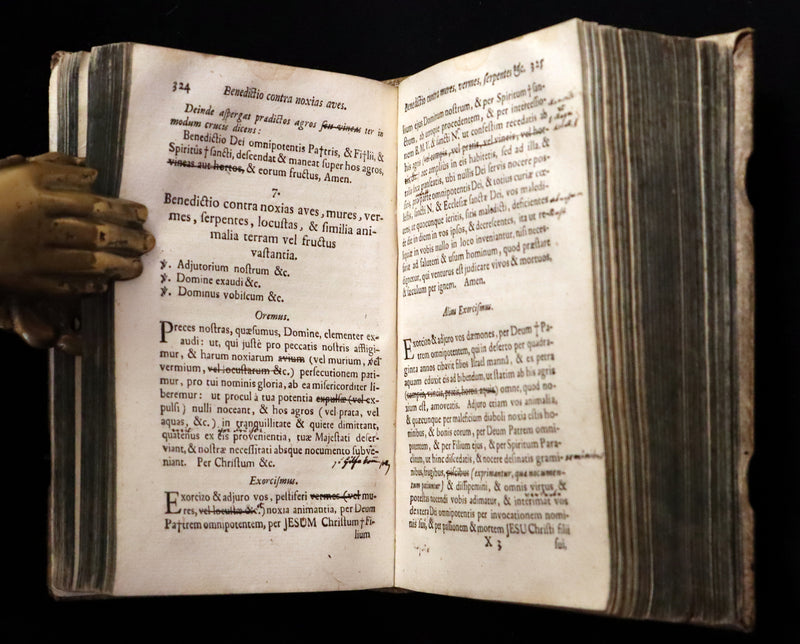 324 Benedictio contra noxias aves.
Deinde aspergat prædictos agros seu vineas ter in
modum crucis dicens:
Benedictio Dei omnipotentis Pa†tris, & Fi†lii, &
Spiritus † sancti, descendat & maneat super hos agros,
vineas aut hortos, & eorum fructus, Amen.
7.
Benedictio contra noxias aves, mures, ver-
mes, serpentes, locustas, & similia ani-
malia terram vel fructus
vastantia.
℣. Adjutorium nostrum &c.
℣. Domine exaudi &c.
℣. Dominus vobiscum &c.
Oremus.
Preces nostras, quæsumus, Domine, clementer ex-
audi: ut, qui justè pro peccatis nostris affligi-
mur, & harum noxiarum avium (vel murium, vel
vermium, vel locustarum &c.) persecutionem pati-
mur, pro tui nominis gloria, ab ea misericorditer li-
beremur: ut procul à tua potentia expulsæ (vel ex-
pulsi) nulli noceant, & hos agros (vel prata, vel
aquas, &c.) in tranquillitate & quiete dimittant,
quatenus ex eis provenientia, tuæ Majestati deser-
viant, & nostræ necessitati absque nocumento subve-
niant. Per Christum &c.
Exorcismus.
Exorcizo & adjuro vos, pestiferi vermes (vel mu-
res, vel locustæ &c.) noxia animantia, per Deum
Pa†trem omnipotentem, per JESUM Christum † Fi-
lium
Benedictio contra mures, vermes, serpentes &c. 325
lium ejus Dominum nostrum, & per Spiritum † san-
ctum, ab utroque procedentem, & per intercessio-
nem B. M. V. & sancti N. ut confestim recedatis ab
his agris (vel campis, vel pratis, vel vineis, vel hor-
nec amplius in eis habitetis, sed ad illa, &
loca transeatis, ubi nullis Dei servis nocere pos-
sitis, pro parte omnipotentis Dei, & totius curiæ cœ-
lestis, sancti N. & Ecclesiæ sanctæ Dei, vos maledi-
cens, ut quocunque ieritis, sitis maledicti, deficientes
de die in diem in vos ipsos, & decrescentes, ita ut re-
liquiæ in vobis nullo in loco inveniantur, nisi neces-
sariæ ad salutem & usum hominum, quod præstare
dignetur, qui venturus est judicare vivos & mortuos,
& sæculum per ignem. Amen.
Alius Exorcismus.
Exorcizo & adjuro vos dæmones, per Deum † Pa-
trem omnipotentem, qui in deserto per quadra-
ginta annos cibavit filios Israël mannâ, & ex petra
aquam eduxit eis ad bibendum, ut statim ab his agris
(campis, vineis, pratis, hortis, aquis) omne, quod no-
xium est, amoveatis. Adjuro etiam vos animalia,
& quæcunque per maleficium diaboli noxia estis ho-
minibus, & bonis eorum, per Deum Patrem omni-
potentem, & per Filium ejus, & per Spiritum Para-
cletum, ut hinc discedatis, & nocere desinatis grami-
nibus, frugibus, piscibus (exprimantur, quæ nocumen-
tum patiuntur) & dissipemini, & omnis virtus, &
potestas nocendi vobis adimatur, & interimat vos
dextera Dei omnipotentis per invocationem nomi-
nis sui, & per passionem & mortem JESU Christi filii
X 3 sui,